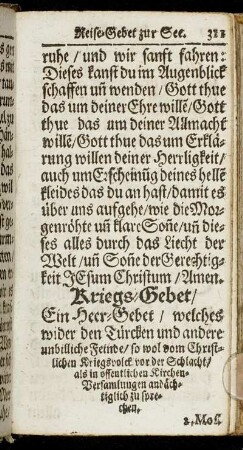 Reise-Gebet zur See. 321
ruhe / und wir sanft fahren:
Dieses kanst du im Augenblick
schaffen uñ wenden / Gott thue
das um deiner Ehre willē / Gott
thue das um deiner Allmacht
willē / Gott thue das um Erklä-
rung willen deiner Herrligkeit /
auch um Erscheinūg deines hellē
kleides das du an hast / damit es
über uns aufgehe / wie die Mor-
genröhte uñ klare Soñe / uñ die-
ses alles durch das Liecht der
Welt / uñ Soñe der Gerechtig-
keit JEsum Christum / Amen.
Kriegs-Gebet /
Ein Heer-Gebet / welches
wider den Türcken und andere
unbilliche Feinde / so wol vom Christ-
lichen Kriegsvolck vor der Schlacht /
als in offentlichen Kirchen-
Versamlungen andäch-
tiglich zu spre-
chen.
2. Mos.